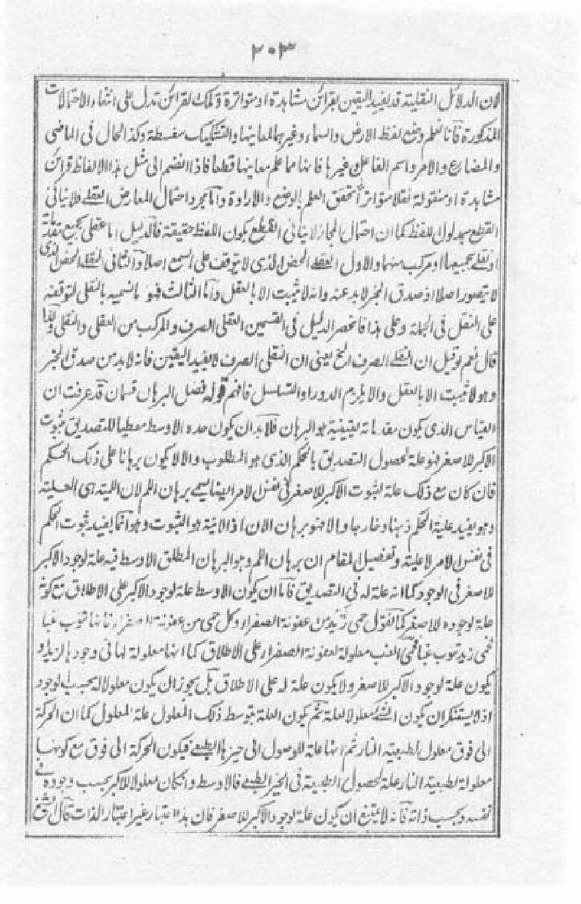 ٣٠٣
لان الدلائل النقلية قد يفيد اليقين بقرائن مشاهدة او متواترة وتلك القرائن تدل على انتفاء الاحتمالات
المذكورة فانا نعلم وضع لفظ الارض والسماء وغيرهما لمعانيها والتشكيك سفسطة وكذا الحال فى الماضى
والمضارع والامر واسم الفاعل وغيرها فانها مما علم معانيها قطعا فاذا انضم الى مثل هذا الالفاظ قرائن
مشاهدة او منقولة نقلا متواترا تحقق العلم بالوضع والارادة واما مجرد احتمال المعارض العقلى فلا ينافى
القطع بمدلول اللفظ كما ان احتمال المجاز لا ينافى القطع بكون اللفظ حقيقة فالدليل اما عقلى بجميع مقدماته
او نقلى بجميعها او مركب منهما والاول العقلى المحض الذى لا يتوقف على السمع اصلا والثانى النقلى المحض الذى
لا يتصور اصلا اذ صدق المخبر لابد عنه وانه لا يثبت الا بالعقل واما الثالث فهو ما نسميه بالنقلى لتوقفه
على النقل فى الجملة وعلى هذا فانحصر الدليل فى القسمين العقلى الصرف والمركب من العقلى والنقلى ولذا
قال نعم لو قيل ان النقلى الصرف الخ يعنى ان النقلى الصرف لا يفيد اليقين فانه لابد من صدق المخبر
وهو لا يثبت الا بالعقل والا يلزم الدور او التسلسل فافهم قوله فصل البرهان قسمان قد عرفت ان
القياس الذى يكون مقدماته يقينية هو البرهان فلابد ان يكون حده الاوسط معطيا للتصديق بثبوت
الاكبر للاصغر فهو علة لحصول التصديق بالحكم الذى هو المطلوب والا لا يكون برهانا على ذلك الحكم
فان كان مع ذلك علة لثبوت الاكبر للاصغر فى نفس الامر ايضا يسمى برهان اللم لان اللمية هى العلية
وهو يفيد علية الحكم ذهنا وخارجا والا فهو برهان الان اذ الانية هو الثبوت وهو انما يفيد ثبوت الحكم
فى نفس الامر لا عليته وتفصيل المقام ان برهان اللم وهو البرهان المطلق الاوسط فيه علة لوجود الاكبر
للاصغر فى الوجود كما انه علة له فى التصديق فاما ان يكون الاوسط علة لوجود الاكبر على الاطلاق مع كونه
علة لوجوده للاصغر كما تقول حمى زيد من عفونة الصفراء وكل حمى من عفونة الصفراء فانها تنوب غبا
فحمى زيد تنوب غبا فحمى الغب معلولة لعفونة الصفراء على الاطلاق كما انها معلولة لها فى وجودها لزيد او
يكون علة لوجود الاكبر للاصغر ولا يكون علة له على الاطلاق بل يجوز ان يكون معلولا له بحسب الوجود
اذ لا يستنكر ان يكون الشئ معلولا لعلة ثم يكون العلة بتوسط ذلك المعلول علة لمعلول كما ان الحركة
الى فوق معلول لطبيعة النار ثم انها علة للوصول الى حيزها الطبيعى فيكون الحركة الى فوق مع كونها
معلولة لطبيعة النار علة لحصول الطبيعة فى الحيز الطبيعى فالاوسط وان كان معلولا للاكبر بحسب وجوده فى
نفسه وبحسب ذاته فانه لا يمتنع ان يكون علة لوجود الاكبر للاصغر فان هذا اعتبار غير اعتبار الذات قال الشيخ